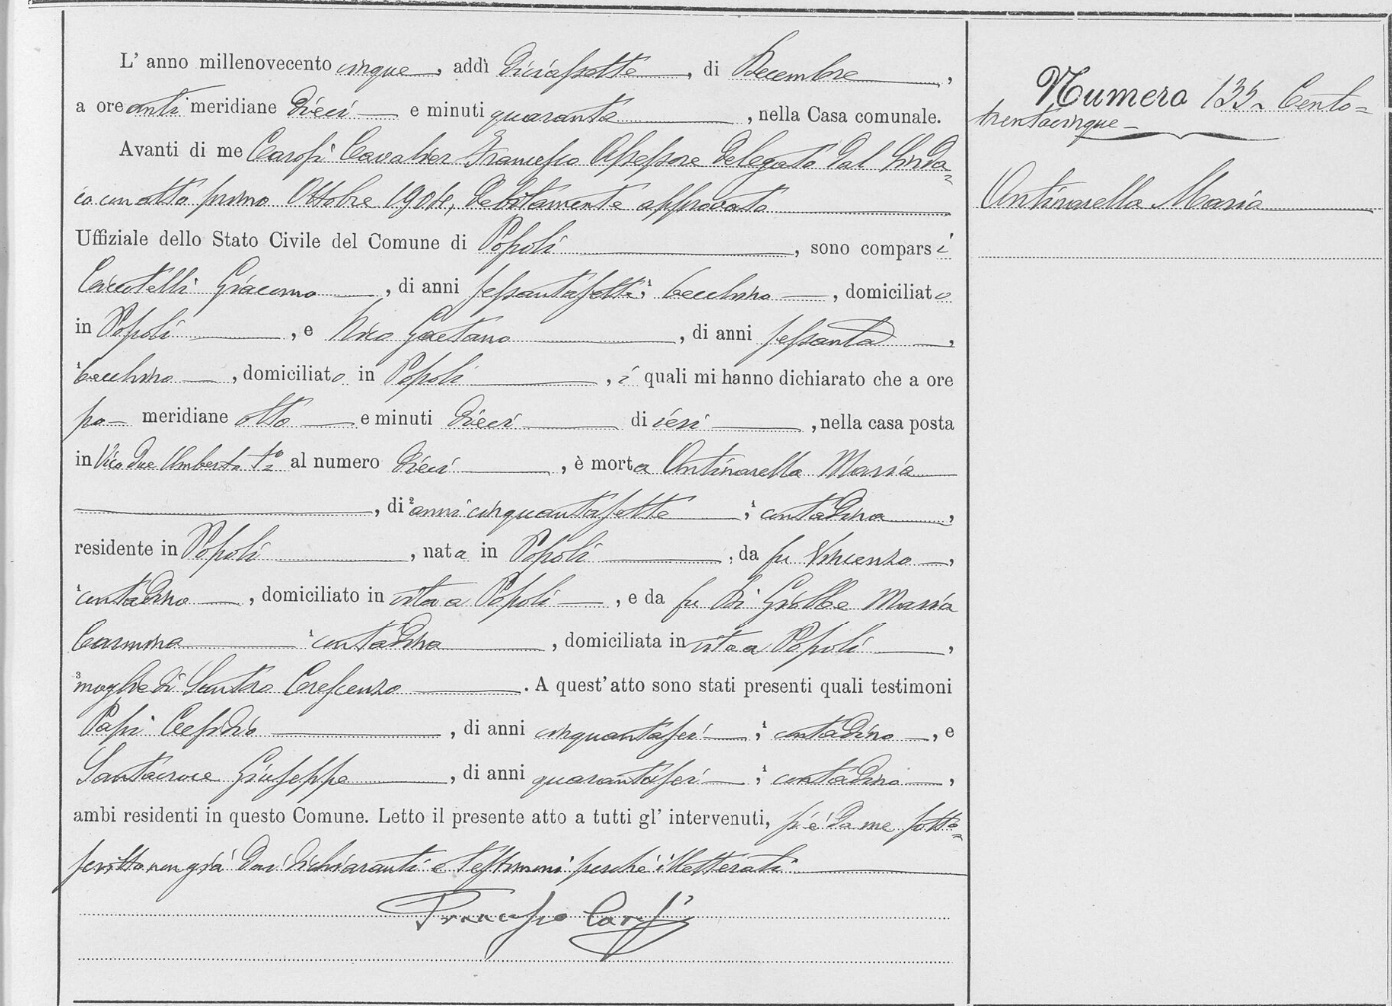 L' anno millenovecento cinque, addì diciassette, di Decembre,
a ore anti meridiane dieci e minuti quaranta, nella Casa comunale.
Avanti di me Carosi Cavalier Francesco Assessore delegato dal Sinda=
co con atto primo Ottobre 1904, debitamente approvato
Uffiziale dello Stato Civile del Comune di Popoli, sono comparsi
Ciccotelli Giacomo, di anni sessantasette, becchino, domiciliato
in Popoli, e Nico Gaetano, di anni sessanta,
becchino, domiciliato in Popoli, i quali mi hanno dichiarato che a ore
po= meridiane otto e minuti dieci di ieri, nella casa posta
in Vico due Umberto 1° al numero dieci, è morta Antinarella Maria
, di anni cinquantasette, contadina,
residente in Popoli, nata in Popoli, da fu Vincenzo,
contadino, domiciliato in vita a Popoli, e da fu Di Maria
Carmina contadina, domiciliata in vita a Popoli,
moglie di Santro Crescenzo. A quest' atto sono stati presenti quali testimoni
Papi Cesidio, di anni cinquantasei, contadino, e
Santacroce Giuseppe, di anni quarantasei, contadino,
ambi residenti in questo Comune. Letto il presente atto a tutti gl' intervenuti, si è da me sotto=
scritto non già dai dichiaranti e testimoni perché illetterati
Francesco Carosi
Numero 135 Cento=
trentacinque
Antinarella Maria